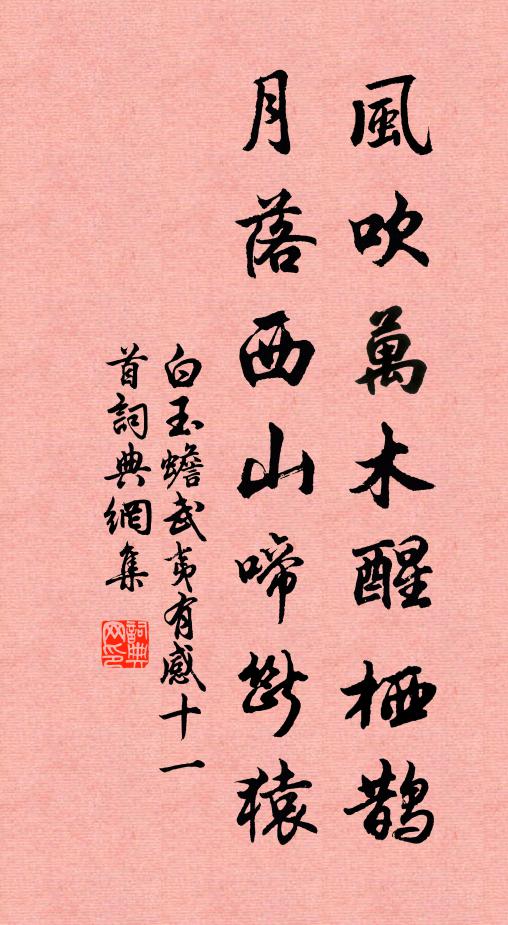 風吹萬木醒栖鵲
月落西山啼斷猿
白玉蟾武夷有感十一
首詞典網集
詞典
网印